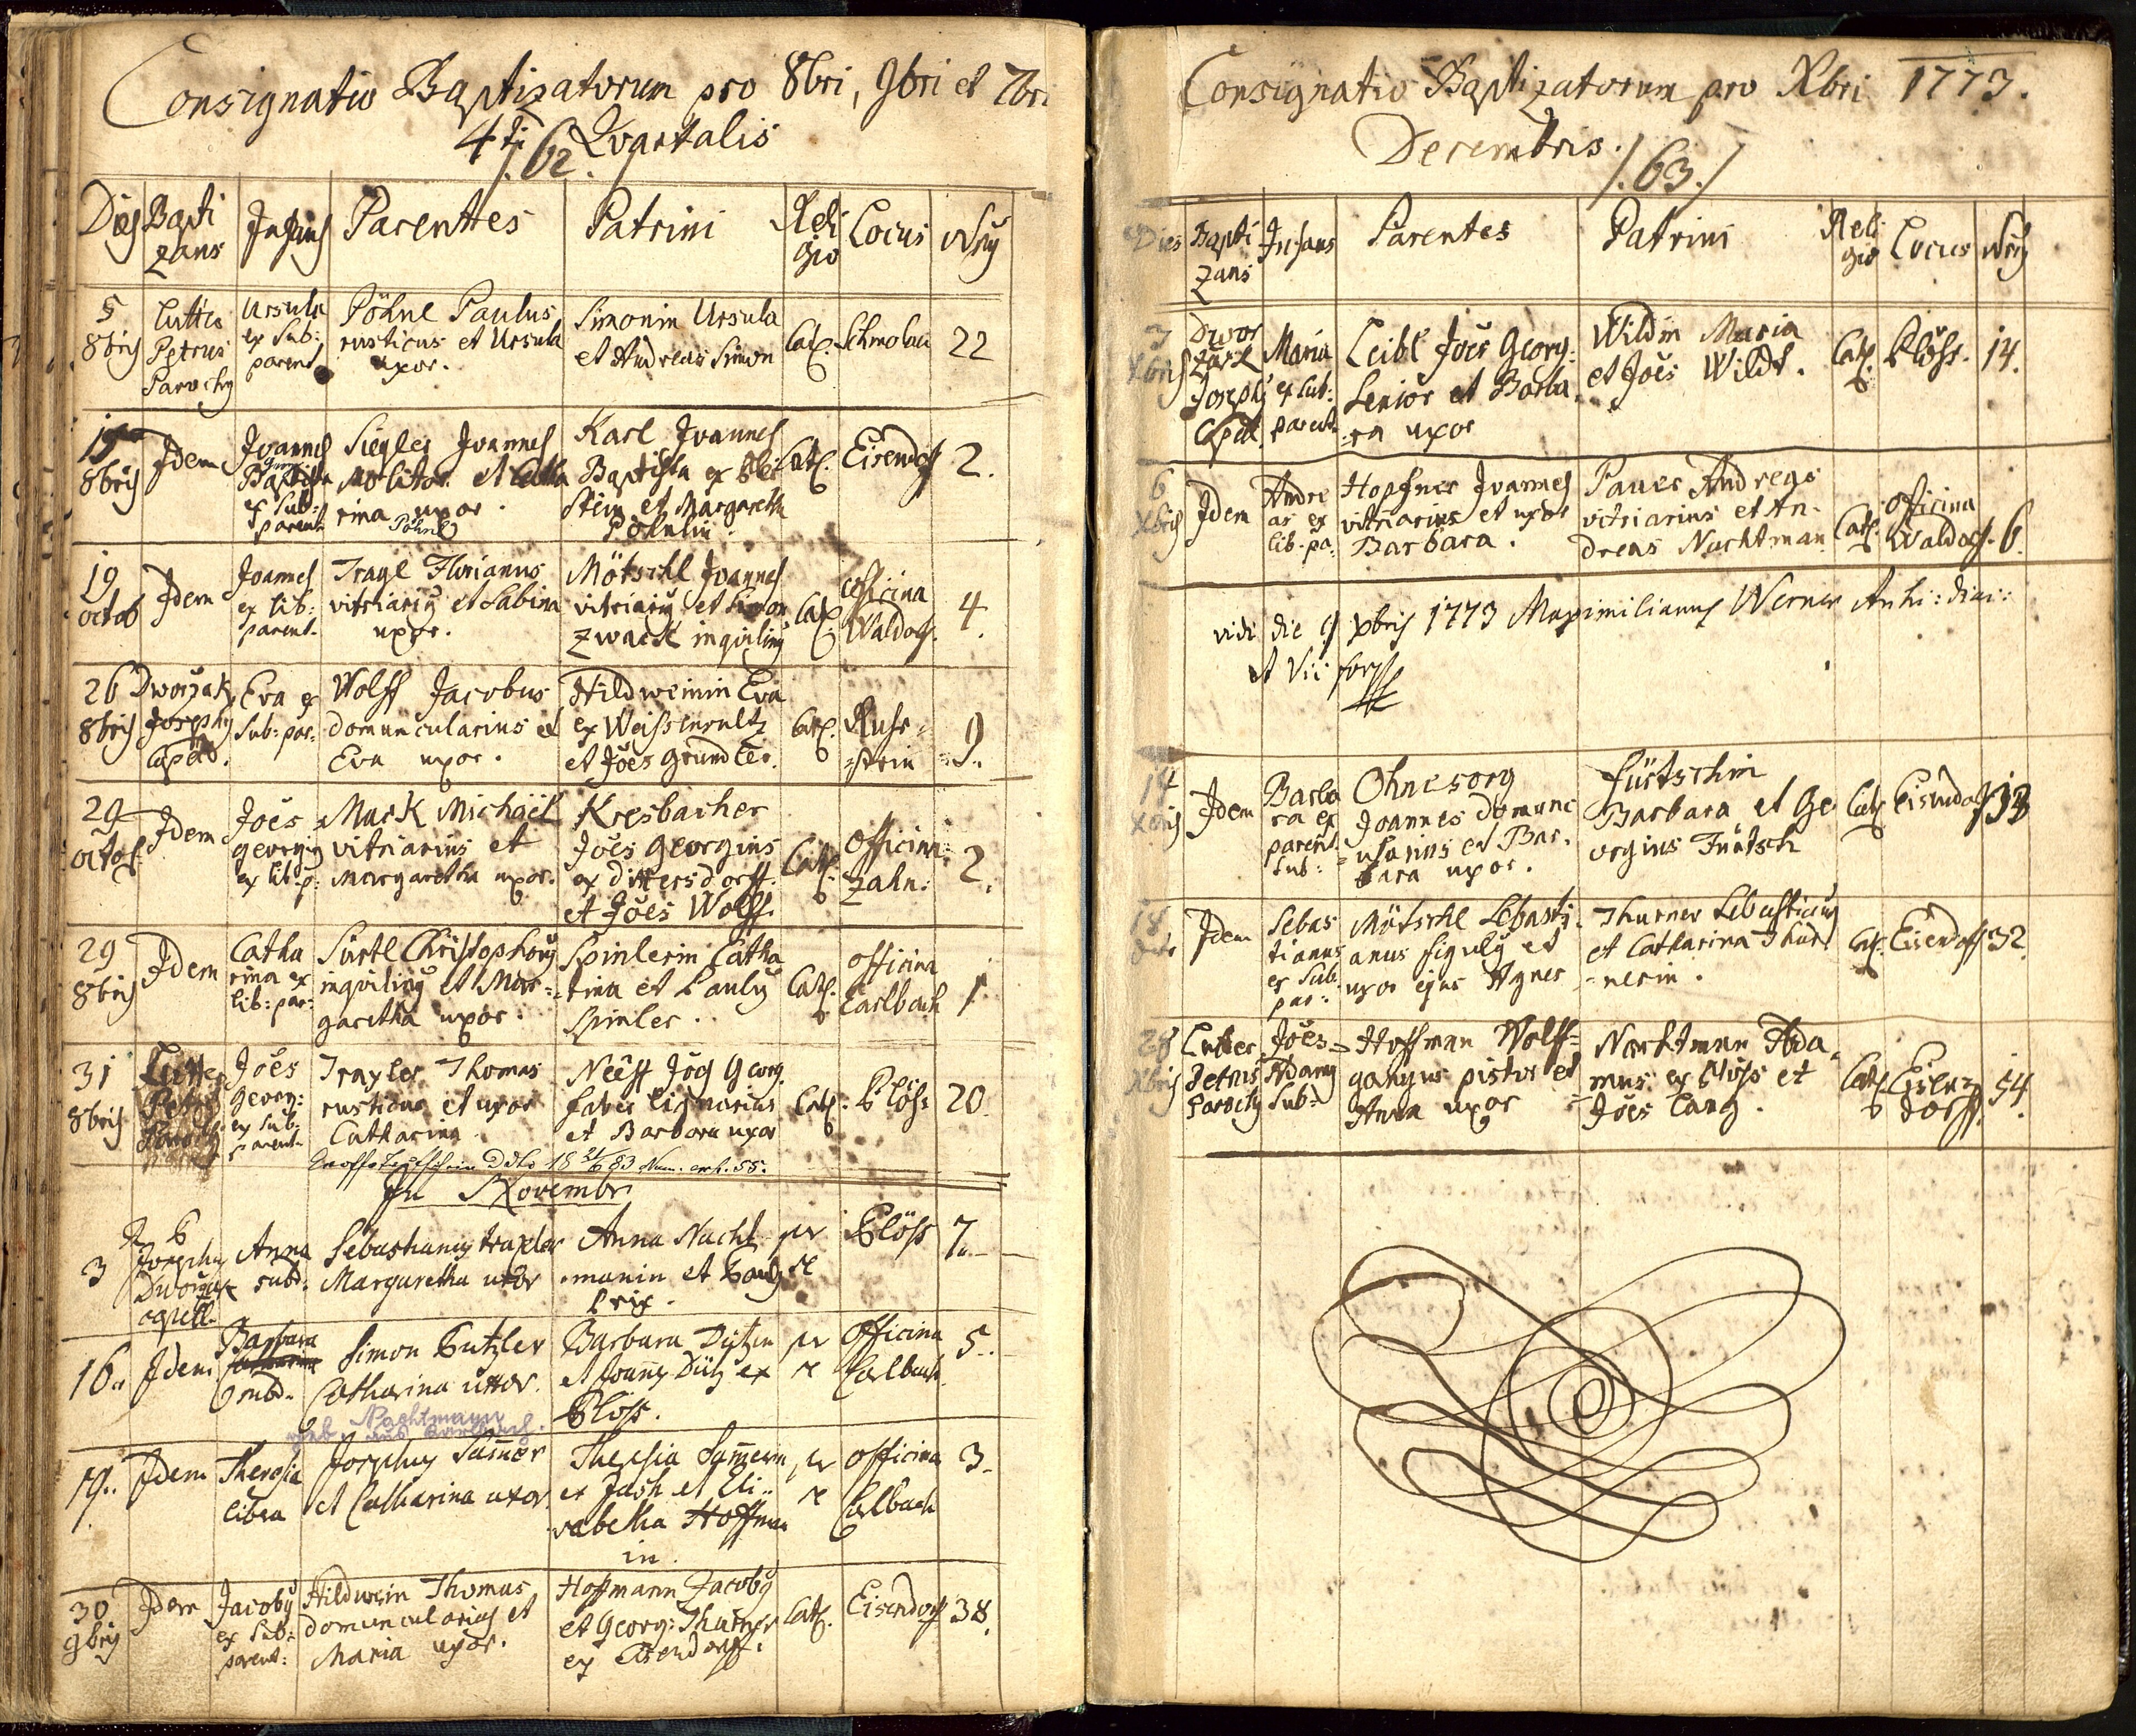 Consignatio Baptizatorum pro 8bri, 9bri et Xbri
4ti Qvartalis
/.62./
Dies Bapti zans Infans Parentes Patrini Reli gio Locus Nrus
5 8bris
Lutter Petrus Parochus
Ursula ex sub: parent.
Pöhnl Paulus rusticus et Ursula uxor.
Simonin Ursula et Andreas Simon
Cath. Schmolau 22
8bris
Idem
Joannes Baptista ex Sub: parent.
Siegler Joannes Molitor et Catha rina uxor. Pöhnl
Karl Joannes Baptista ex et Margaretha Pöhnlin.
Cath. Eisendorf 2.
19 octob
Idem
Joannes ex lib: parent.
Tragl Florianus vitriarius et Sabina uxor.
Mötschl Joannes vitriarius et Simon Zwack inquilinus
Cath. officina Waldorf. 4.
26 8bris
Dworzak Josephus Capell.
Eva ex Sub: par:
Wolff Jacobus domuncularius et Eva uxor.
Hildweinin Eva ex Weissensultz et Joēs Grundler.
Cath. Ruhr= stein 9.
29 octob.
Idem
Joēs georgius ex lib: p:
Mark Michaël vitriarius et Margaretha uxor.
Kresbacher Joēs Georgius ex dittersdorff. et Joēs Wolff.
Cath. officina: Zahn: 2.
29 8bris
Idem
Catha rina ex lib: par:
Christophorus inquilinus et Mar= garetha uxor.
Spinlerin Catha rina et Paulus Spinler.
Cath. officina Carlbach 1.
31 8bris
Lutter Petrus Parochus
Joēs Georg: ex Sub: parent.
Trayler Thomas rusticus et uxor Catharina.
Georg. faber lignarius et Barbara uxor
Cath. Plöss 20.
In Novembri
3
Josephus Dworzak capell.
Anna subd.
Sebastianus traxler Margaretha uxor
Anna Nacht= manin et Paulus
Plöss 7.
16.. Idem
Barbara subd.
Simon Putzler Catharina uxor.
geb. Nachtmann aus Carlbach.
Barbara et Joannes ex Plöss.
officina Carlbach. 5..
Idem
Theresia libera
Josephus et Catharina uxor.
Theresia ex et Eli.. sabetha Hoffman in.
officina Carlbach 3.
30 9bris
Idem
Jacobus ex Sub: parent:
Hildwein Thomas domuncularius et Maria uxor.
Hoffmann Jacobus et Georg: Thurner ex Eisendorff.
Cath. Eisendorf 38.
Consignatio Baptizatorum pro Xbri 1773.
Decembris.
/.63./
Dies Bapti zans Infans Parentes Patrini Reli gio Locus Nrus
3 Xbris
Dwor zack Josephus Capell.
Maria ex Sub: parent.
Leibl Joēs Georg: Senior et Barba= ra uxor
Wildin Maria et Joēs Wildt.
Cath. Plöss. 14.
6 Xbris
Idem
Andre as ex lib. pa:
Hopfner Joannes vitriarius et uxor Barbara.
Pauer Andreas vitriarius et An= dreas Nachtman
Cath. officina Waldorf. 6.
vidi die 9 Xbris 1773 Maximilianus Werner
14 Xbris
Idem
Barba ra ex parent. Sub:
Ohnesorg Joannes domunc ularius et Bar= bara uxor.
Fürtschin Barbara et Ge orgius Fürtsch
Cath. Eisendorf 13
18
Idem
Sebas tianus ex Sub. par:
Mötschl Sebasti= anus figulus et uxor ejus Agnes
Thurner Sebastianus et Catharina Thur= nerin.
Cath. Eisendorf 32.
28 Xbris
Lutter Petrus Parochus
Joēs Adamus Sub=
Hoffman Wolff= gangus pistor et Anna uxor
Nachtman Ada= mus ex Plöss et Joēs Lang.
Cath. Eisen= dorff. 54.